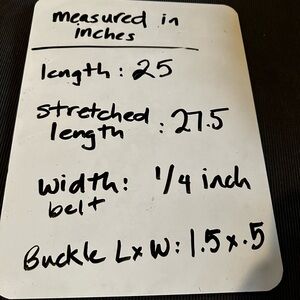 measured in
inches
length: 25
stretched
length : 27.5
width: 1/4 inch
belt
Buckle L x W: 1.5 x .5